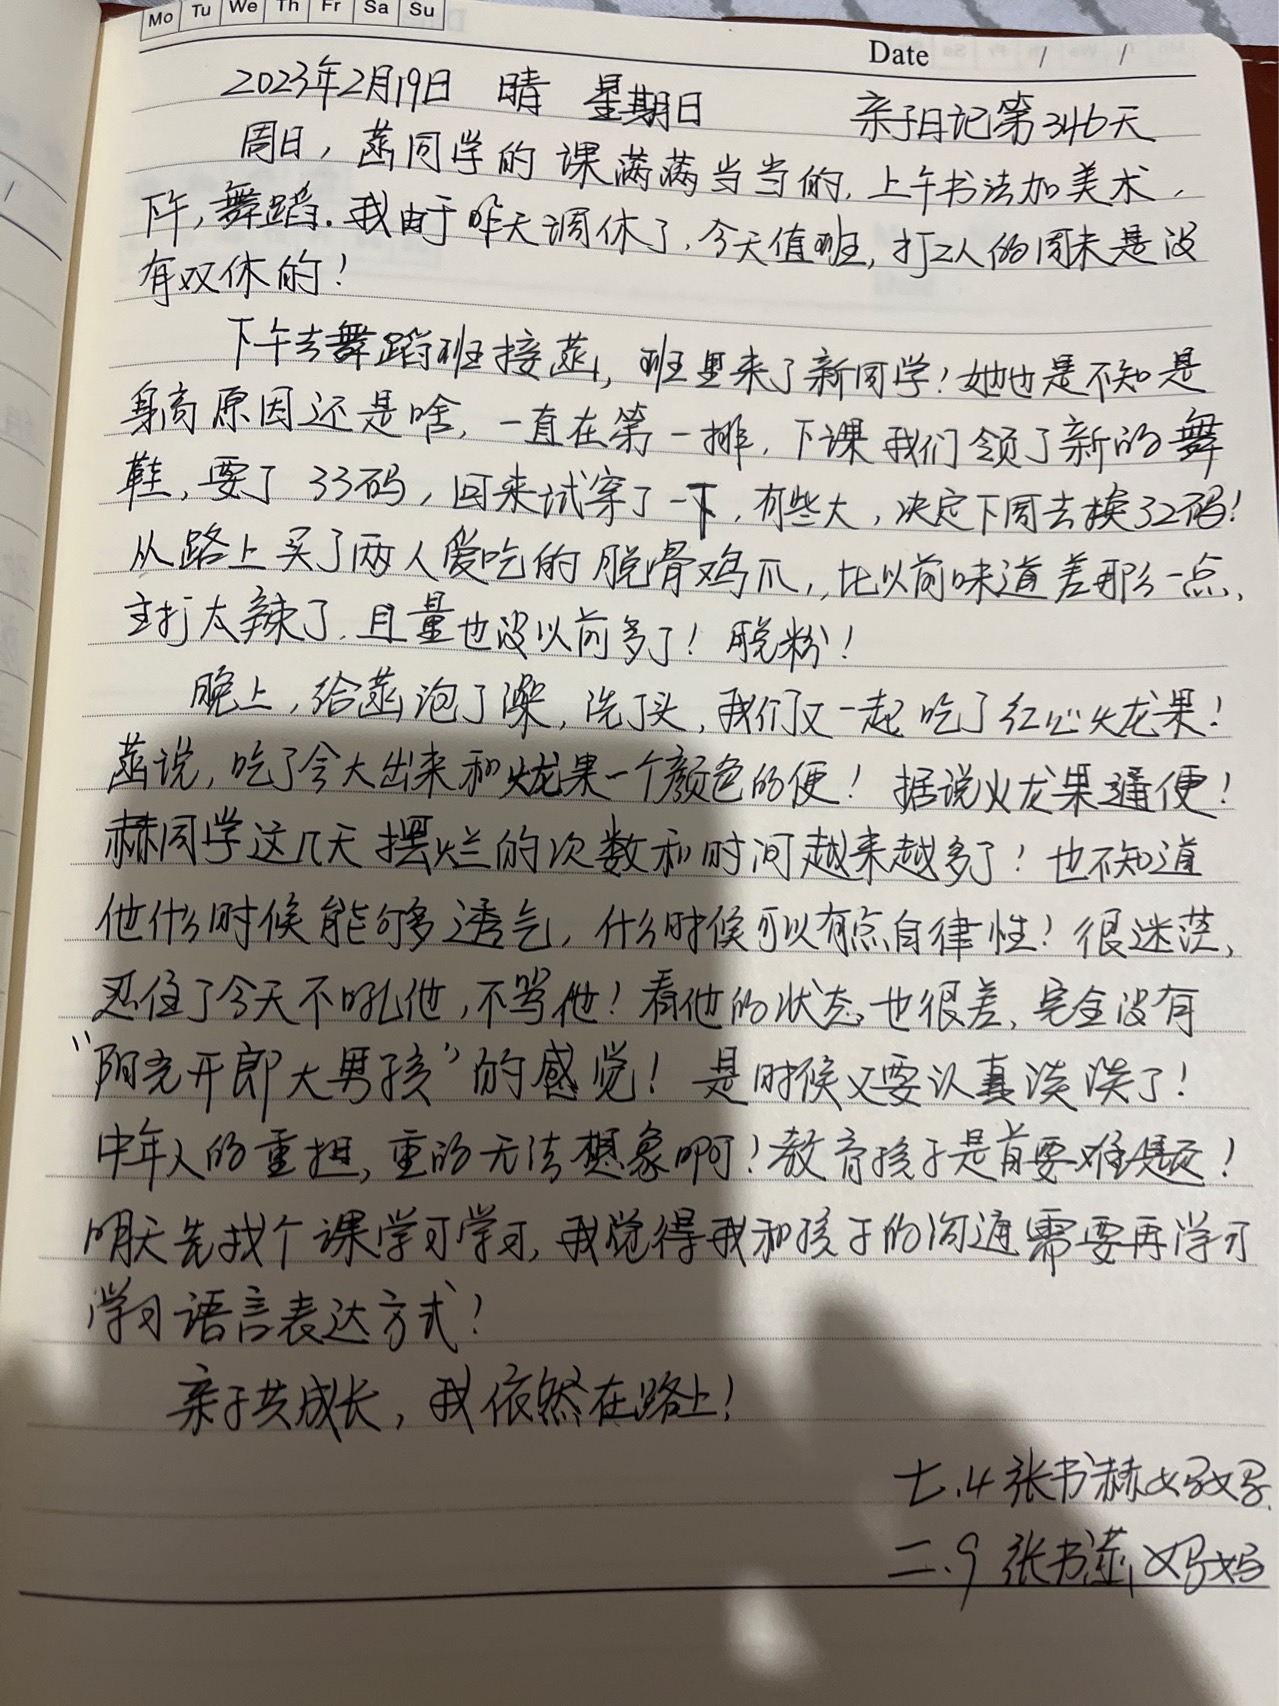 Mo Tu We Th Fr Sa Su
Date / /
2023年2月19日 晴 星期日 亲子日记第346天
周日，菡同学的课满满当当的，上午书法加美术，
下午，舞蹈。我由于昨天调休了，今天值班，打工人的周末是没
有双休的！
下午去舞蹈班接菡，班里来了新同学！她也是不知是
身高原因还是啥，一直在第一排，下课我们领了新的舞
鞋，要了33码，回来试穿了一下，有些大，决定下周去换32码！
从路上买了两人爱吃的脱骨鸡爪，比以前味道差那么一点，
主打太辣了，且量也没以前多了！脱粉！
晚上，给菡泡了澡，洗了头，我们又一起吃了红心火龙果！
菡说，吃了会大出来和火龙果一个颜色的便！据说火龙果通便！
赫同学这几天摆烂的次数和时间越来越多了！也不知道
他什么时候能够多透气，什么时候可以有点自律性！很迷茫，
忍住了今天不吼他，不骂他！看他的状态也很差，完全没有
“阳光开郎大男孩”的感觉！是时候又要认真谈谈了！
中年人的重担，重的无法想象啊！教育孩子是首要难题！
明天先找个课学习学习，我觉得我和孩子的沟通需要再学习
学习语言表达方式！
亲子共成长，我依然在路上！
七.4 张书赫妈妈
二.9 张书菡妈妈